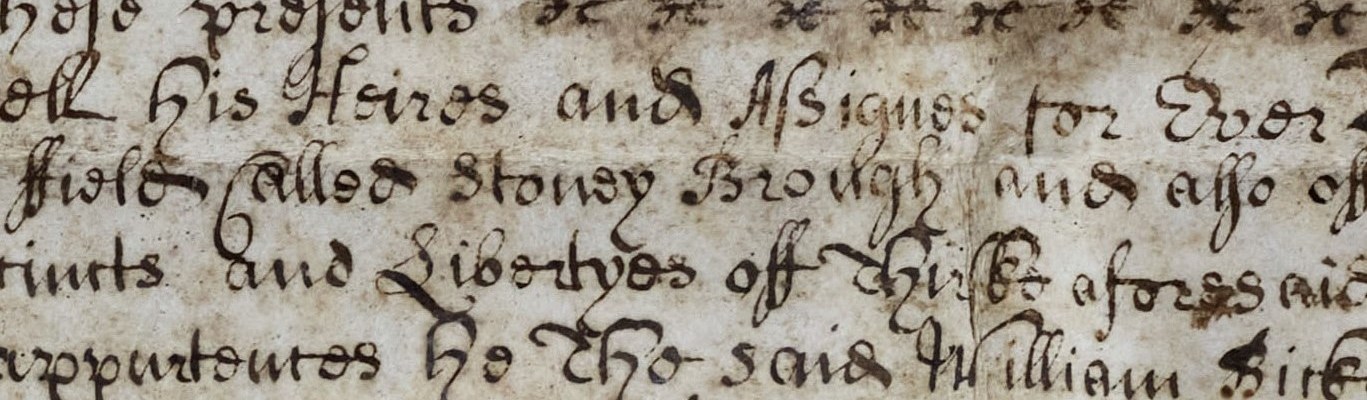 these presents &c &c &c &c &c &c &c &c
ell His Heires and Assignes for Ever
ffield Called Stoney Brough and also off
tincts and Libertyes off Thirske aforesaid
appurtences He The said William Sick